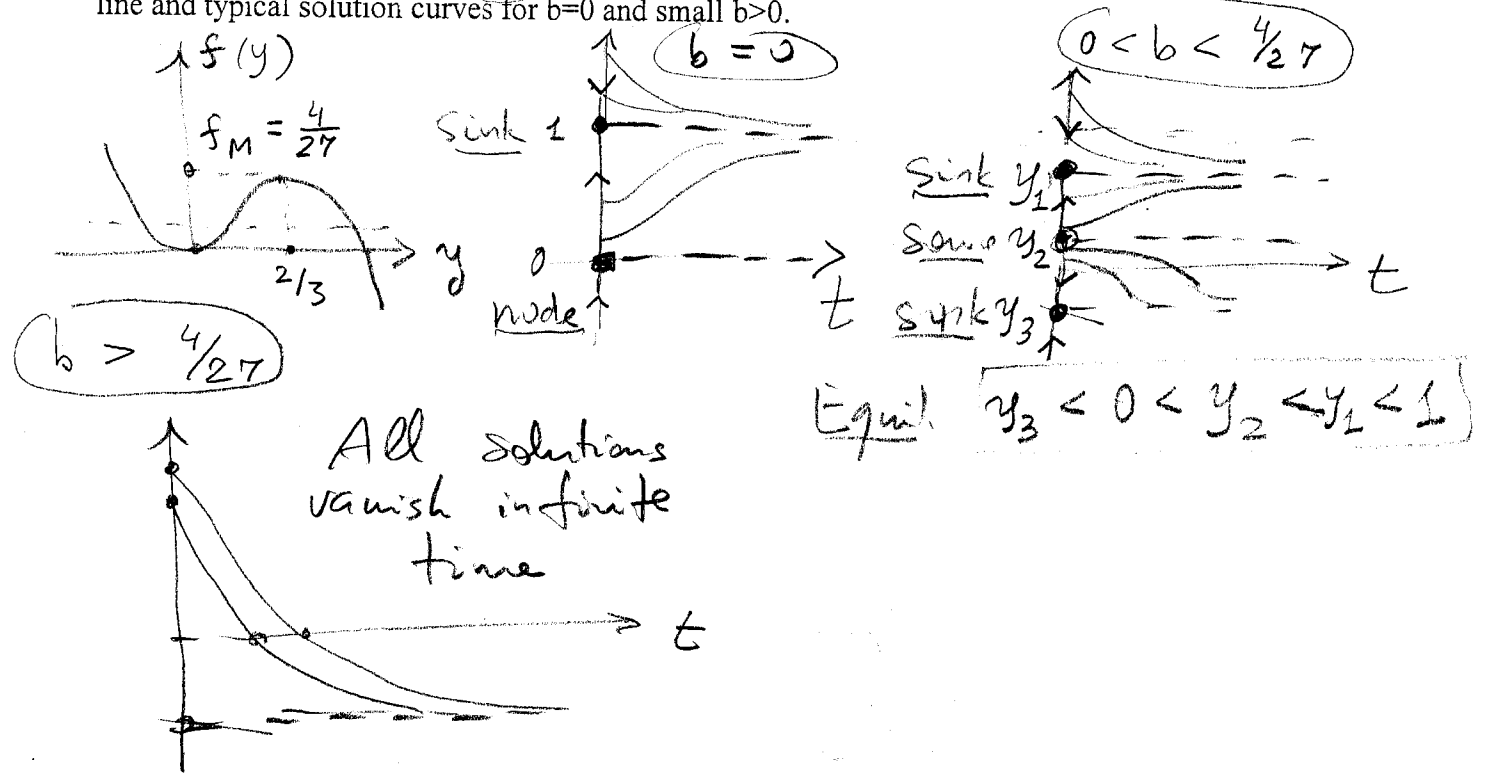 line and typical solution curves for b=0 and small b>0.
f(y)
f_M = 4/27
y
2/3
b = 0
Sink 1
0
node
t
0 < b < 4/27
Sink y₁
y₂
sink y₃
t
Equil. y₃ < 0 < y₂ < y₁ < 1
b > 4/27
All solutions
vanish in finite
time
t